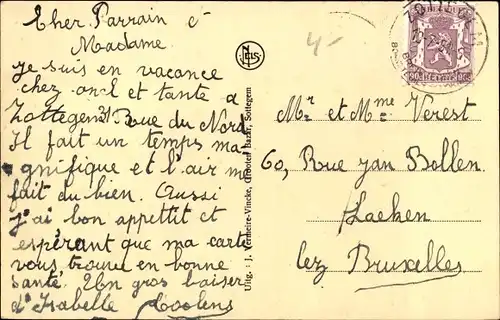 Cher Parrain et
Madame
Je suis en vacance
chez oncl et tante à
Zottegem 31 Rue du Nord
Il fait un temps ma-
gnifique et l'air m
fait du bien. Aussi
j'ai bon appettit et
espérant que ma carte
vous trouve en bonne
santé. Un gros baiser
d'Isabelle Coolens
Uitg.: J. Vermeire-Vincke, Grooten Bazar, Sottegem
4-
Mr et Mme Verest
60, Rue van Bollen
Laeken
lez Bruxelles